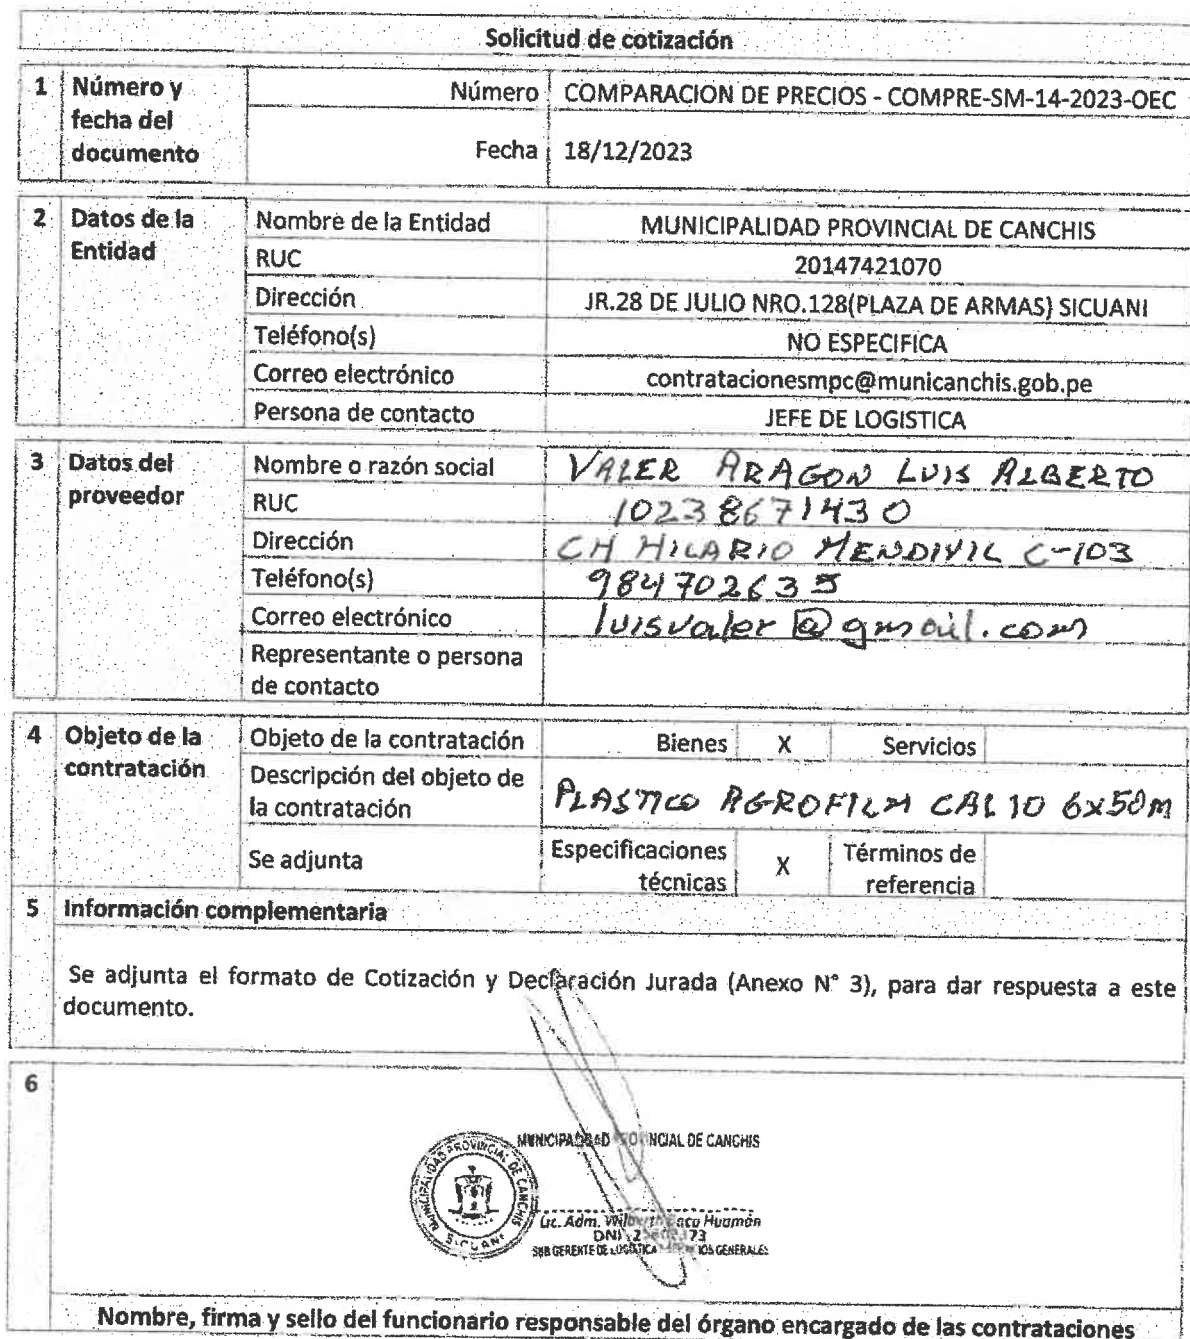 Solicitud de cotización
1 Número y fecha del documento
Número COMPARACION DE PRECIOS - COMPRE-SM-14-2023-OEC
Fecha 18/12/2023
2 Datos de la Entidad
Nombre de la Entidad MUNICIPALIDAD PROVINCIAL DE CANCHIS
RUC 20147421070
Dirección JR.28 DE JULIO NRO.128(PLAZA DE ARMAS) SICUANI
Teléfono(s) NO ESPECIFICA
Correo electrónico contratacionesmpc@municanchis.gob.pe
Persona de contacto JEFE DE LOGISTICA
3 Datos del proveedor
Nombre o razón social VALER ARAGON LUIS ALBERTO
RUC 10238671430
Dirección CH HILARIO MENDIVIL C-103
Teléfono(s) 984702635
Correo electrónico luisvaler@gmail.com
Representante o persona de contacto
4 Objeto de la contratación
Objeto de la contratación Bienes X Servicios
Descripción del objeto de la contratación PLASTICO AGROFILM CAL 10 6x50M
Se adjunta Especificaciones técnicas X Términos de referencia
5 Información complementaria
Se adjunta el formato de Cotización y Declaración Jurada (Anexo N° 3), para dar respuesta a este
documento.
6
MUNICIPALIDAD PROVINCIAL DE CANCHIS
MUNICIPALIDAD PROVINCIAL DE CANCHIS
SICUANI
Lic. Adm. Huamán
DNI
SUB GERENTE DE LOGISTICA GENERALES
Nombre, firma y sello del funcionario responsable del órgano encargado de las contrataciones